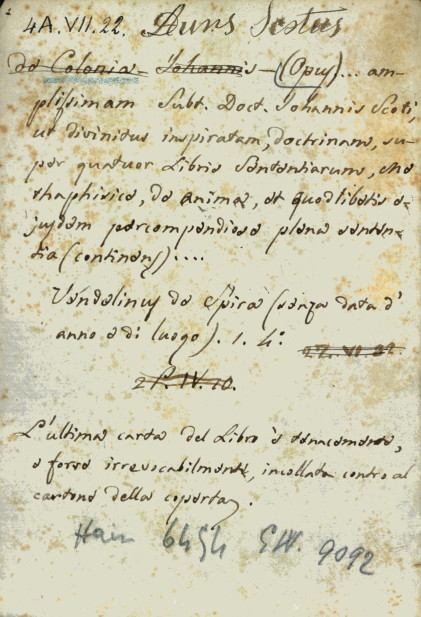 4A.VII.22. Duns Scotus
de Colonia Johannis (Opus)... am-
plissimam Subt. Doct. Johannis Scoti,
ut divinitus inspiratam, doctrinam, su-
per quatuor Libris Sententiarum, Me
thaphisica, de anima, et quodlibetis e-
jusdem percompendiose plena senten-
tia (continens)....
Vendelinus de Spira (senza data d'
anno e di luogo). 1. 4º
27. VI 22
2 P. IV. 10.
L'ultima carta del Libro è tenacemente,
e forse irrevocabilmente, incollata contro al
cartone della coperta.
Hain 6454 GW. 9092